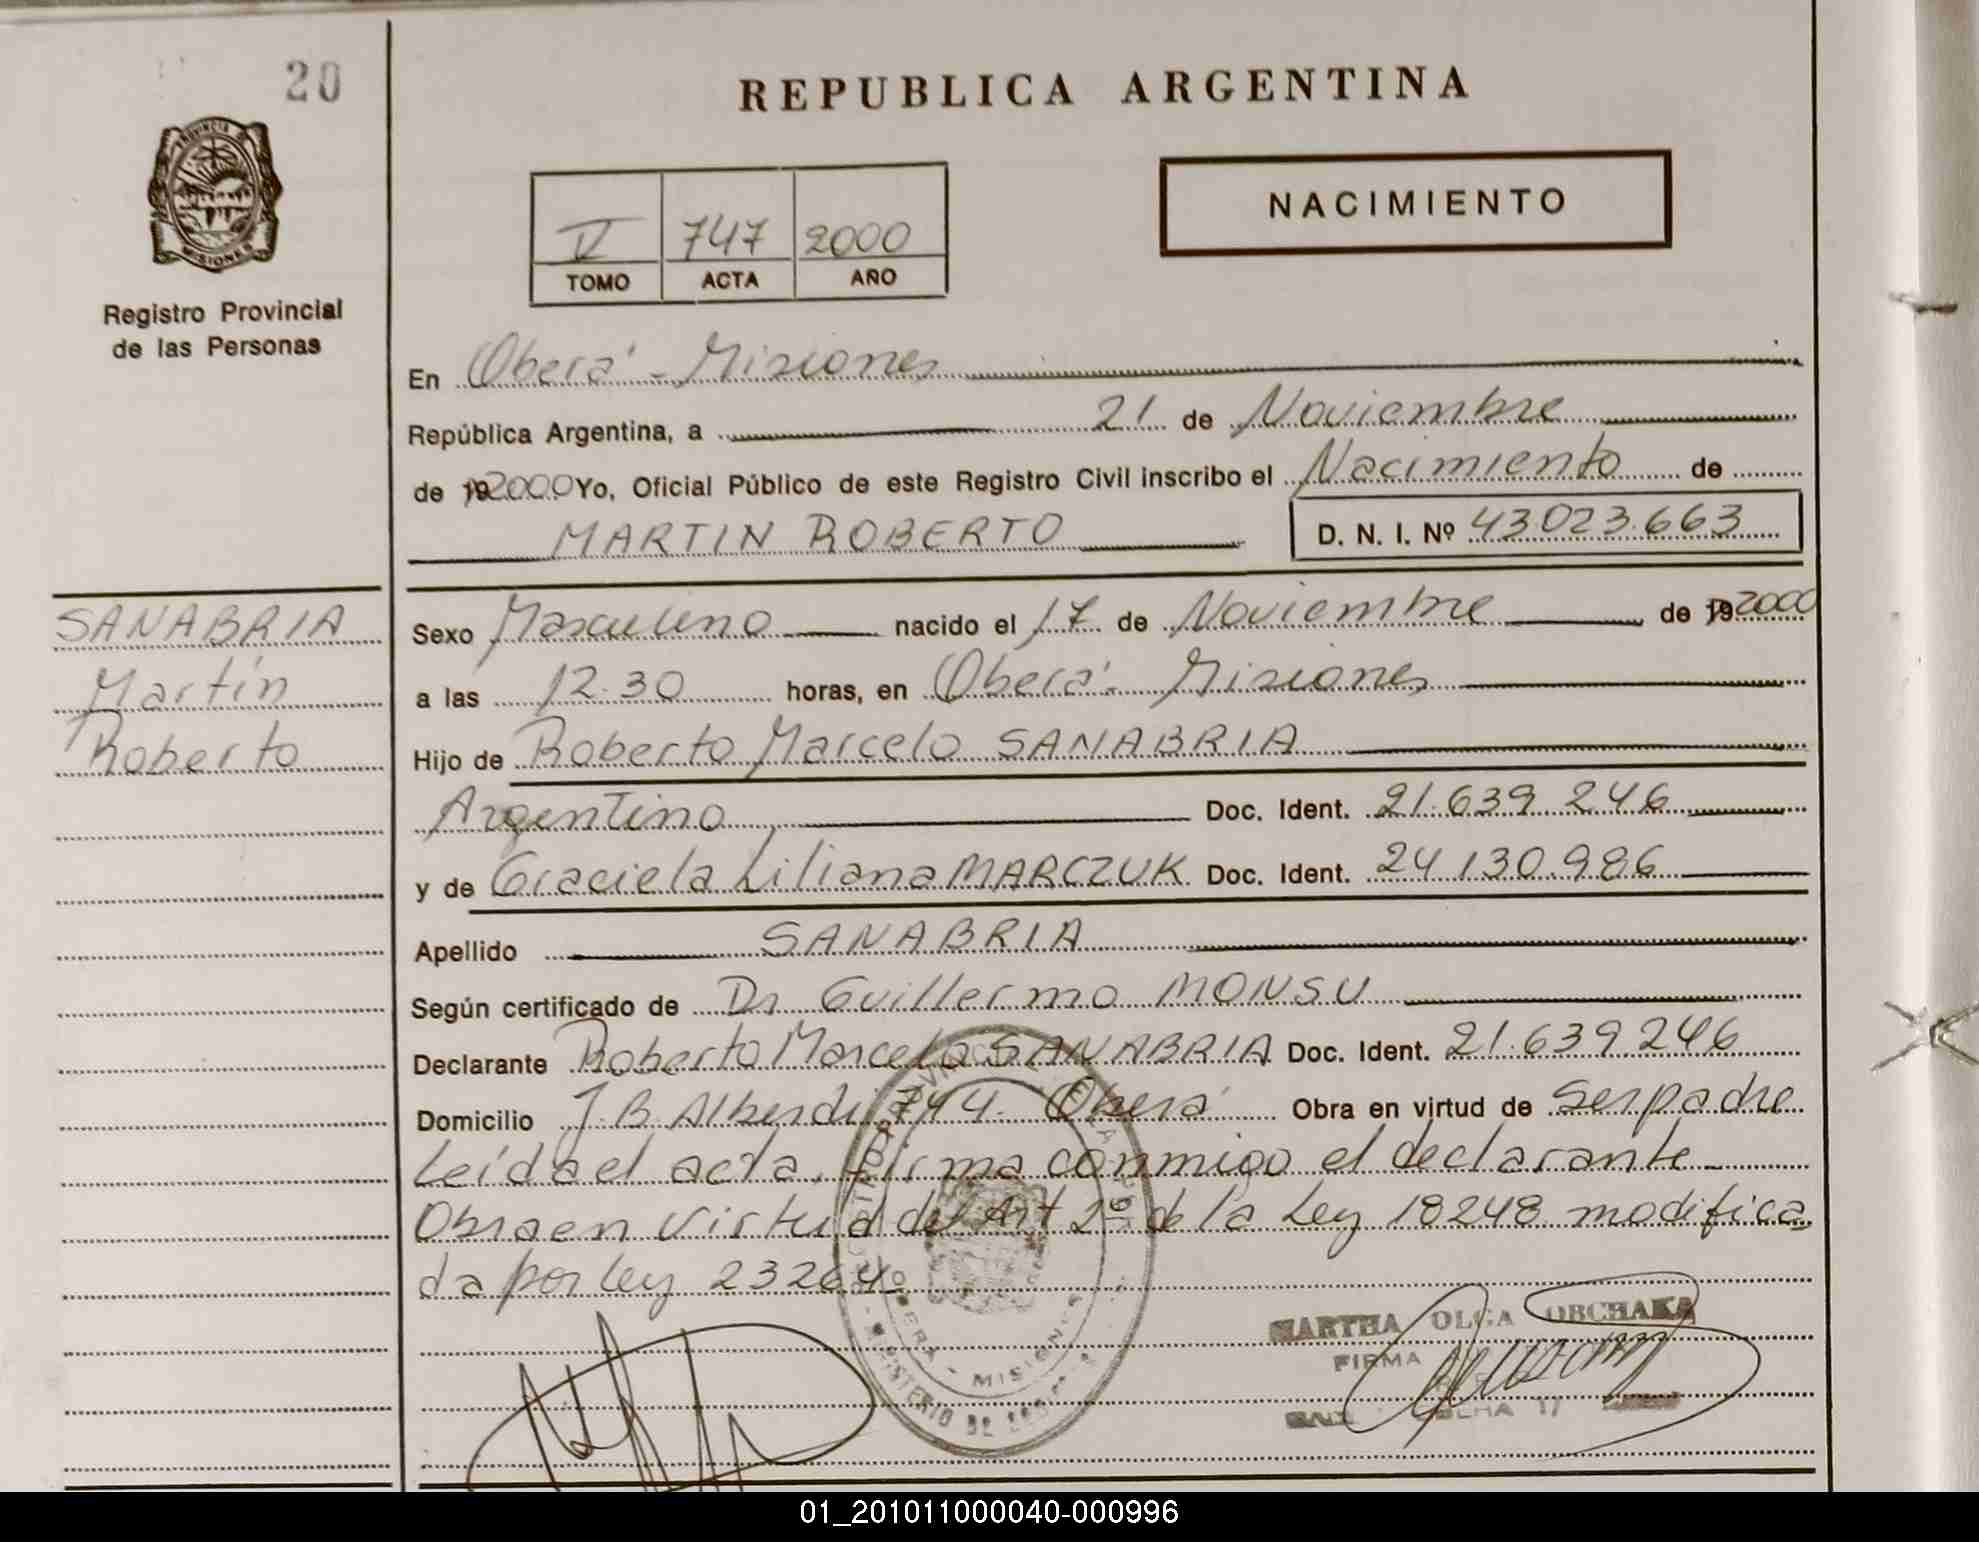 20
PROVINCIA DE
MISIONES
Registro Provincial
de las Personas
REPUBLICA ARGENTINA
NACIMIENTO
V 747 2000
TOMO ACTA AÑO
En Oberá - Misiones
República Argentina, a 21 de Noviembre
de 192000 Yo, Oficial Público de este Registro Civil inscribo el Nacimiento de
MARTIN ROBERTO D. N. I. Nº 43.023.663
SANABRIA
Martín
Roberto
Sexo Masculino nacido el 17 de Noviembre de 192000
a las 12.30 horas, en Oberá - Misiones
Hijo de Roberto Marcelo SANABRIA
Argentino Doc. Ident. 21.639.246
y de Graciela Liliana MARCZUK Doc. Ident. 24.130.986
Apellido SANABRIA
Según certificado de Dr Guillermo MONSU
Declarante Roberto Marcelo SANABRIA Doc. Ident. 21.639.246
Domicilio J.B. Alberdi 744. Oberá Obra en virtud de Ser padre
Leída el acta, firma conmigo el declarante
Obra en virtud del Art 2º de la Ley 18248 modifica
da por ley 23264
OBERA - MISIONES
MINISTERIO DE
MARTHA OLGA ORCHAKA
FIRMA
01_201011000040-000996